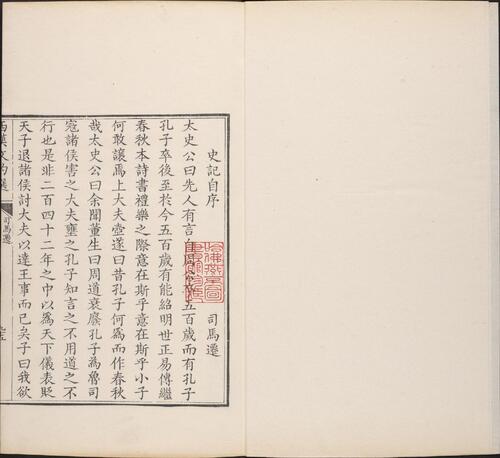 史記自序　司馬遷
太史公曰先人有言自周公卒五百歲而有孔子
孔子卒後至於今五百歲有能紹明世正易傳繼
春秋本詩書禮樂之際意在斯乎意在斯乎小子
何敢讓焉上大夫壺遂曰昔孔子何爲而作春秋
哉太史公曰余聞董生曰周道衰廢孔子爲魯司
寇諸侯害之大夫壅之孔子知言之不用道之不
行也是非二百四十二年之中以爲天下儀表貶
天子退諸侯討大夫以達王事而已矣子曰我欲
西漢文約選　司馬遷